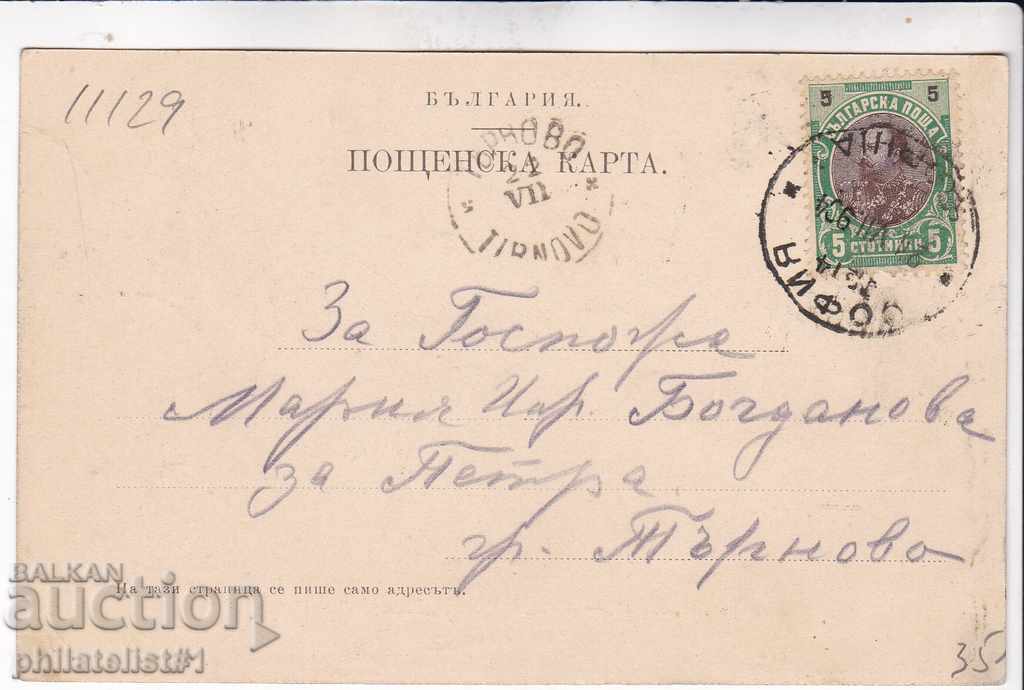 11129
БЪЛГАРИЯ.
ПОЩЕНСКА КАРТА.
ТЪРНОВО
24
VII
TIRNOVO
5 5
БЪЛГАРСКА ПОЩА
5 СТОТИНКИ 5
СОФИЯ
За Госпожа
Мария Ил. Богданова
за Петра
гр. Търново
На тази страница се пише само адресътъ.
BALKAN
auction
philatelist#1
35